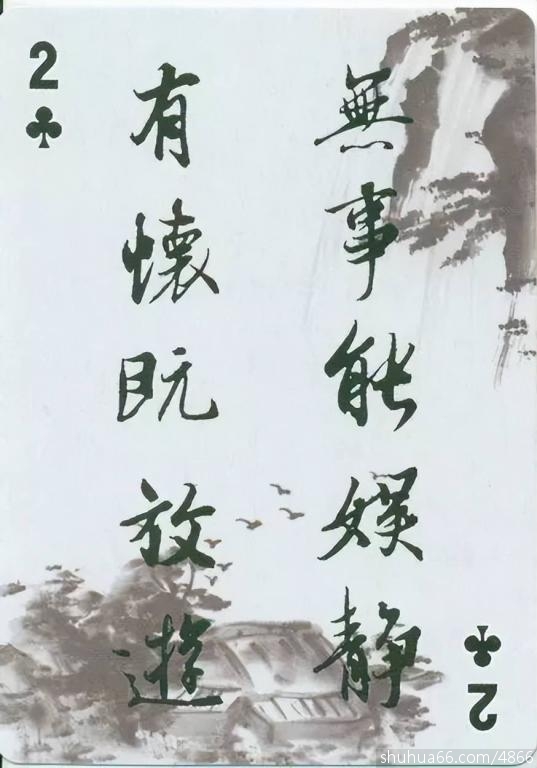 2
無事能娛静
有懷既放遊
2
shuhua66.com/4866